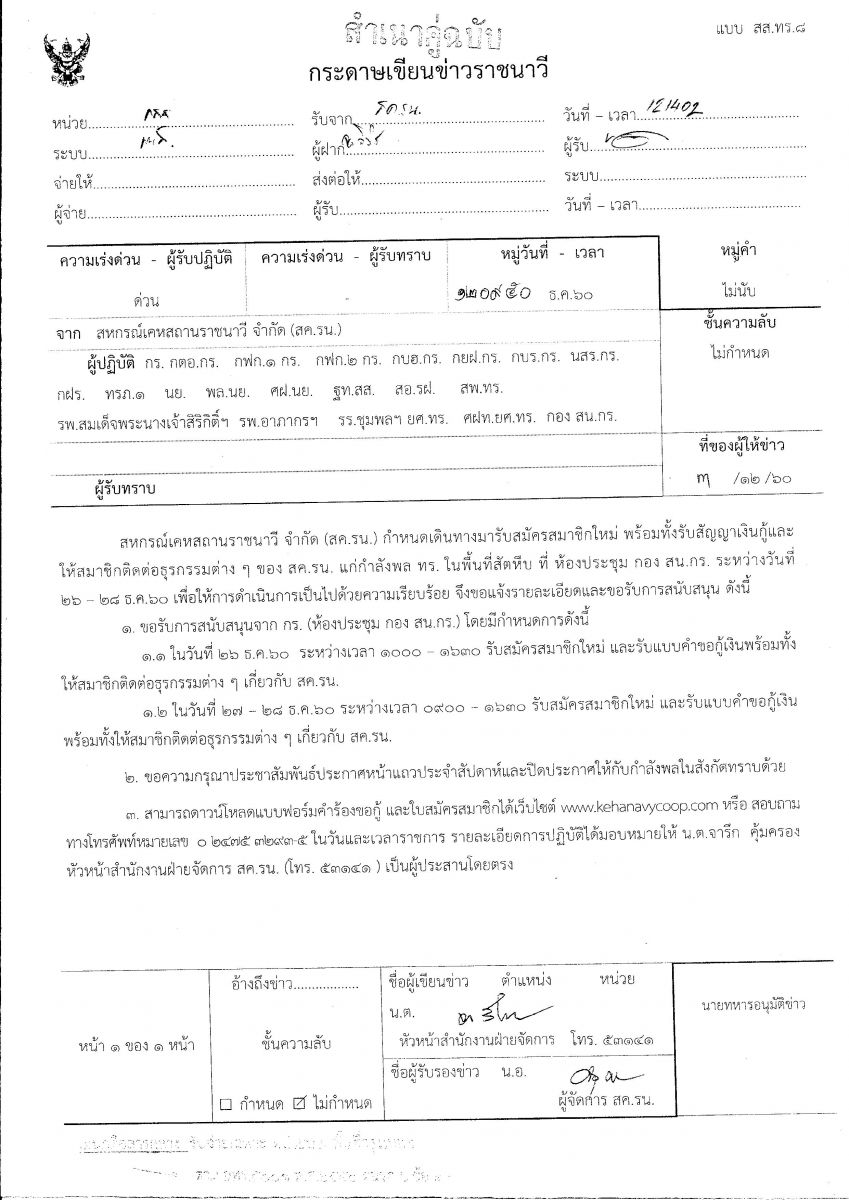 สำเนาคู่ฉบับ
แบบ สส.ทร.๘
กระดาษเขียนข่าวราชนาวี
หน่วย รับจาก วันที่ – เวลา 121402
ระบบ ผู้ฝาก ผู้รับ
จ่ายให้ ส่งต่อให้ ระบบ
ผู้จ่าย ผู้รับ วันที่ – เวลา
ความเร่งด่วน - ผู้รับปฏิบัติ ความเร่งด่วน - ผู้รับทราบ หมู่วันที่ - เวลา หมู่คำ
ด่วน - ๑๒๐๙๕๐ ธ.ค.๖๐ ไม่นับ
จาก สหกรณ์เคหสถานราชนาวี จำกัด (สค.รน.) ชั้นความลับ
ผู้ปฏิบัติ กร. กตอ.กร. กฟก.๑ กร. กฟก.๒ กร. กบฮ.กร. กยฝ.กร. กบร.กร. นสร.กร. ไม่กำหนด
กฝร. ทรภ.๑ นย. พล.นย. ศฝ.นย. ฐท.สส. สอ.รฝ. สพ.ทร.
รพ.สมเด็จพระนางเจ้าสิริกิติ์ฯ รพ.อาภากรฯ รร.ชุมพลฯ ยศ.ทร. ศฝท.ยศ.ทร. กอง สน.กร.
ที่ของผู้ให้ข่าว
/๑๒ /๖๐
ผู้รับทราบ
สหกรณ์เคหสถานราชนาวี จำกัด (สค.รน.) กำหนดเดินทางมารับสมัครสมาชิกใหม่ พร้อมทั้งรับสัญญาเงินกู้และ
ให้สมาชิกติดต่อธุรกรรมต่าง ๆ ของ สค.รน. แก่กำลังพล ทร. ในพื้นที่สัตหีบ ที่ ห้องประชุม กอง สน.กร. ระหว่างวันที่
๒๖ – ๒๘ ธ.ค.๖๐ เพื่อให้การดำเนินการเป็นไปด้วยความเรียบร้อย จึงขอแจ้งรายละเอียดและขอรับการสนับสนุน ดังนี้
๑. ขอรับการสนับสนุนจาก กร. (ห้องประชุม กอง สน.กร.) โดยมีกำหนดการดังนี้
๑.๑ ในวันที่ ๒๖ ธ.ค.๖๐ ระหว่างเวลา ๑๐๐๐ – ๑๖๓๐ รับสมัครสมาชิกใหม่ และรับแบบคำขอกู้เงินพร้อมทั้ง
ให้สมาชิกติดต่อธุรกรรมต่าง ๆ เกี่ยวกับ สค.รน.
๑.๒ ในวันที่ ๒๗ – ๒๘ ธ.ค.๖๐ ระหว่างเวลา ๐๙๐๐ – ๑๖๓๐ รับสมัครสมาชิกใหม่ และรับแบบคำขอกู้เงิน
พร้อมทั้งให้สมาชิกติดต่อธุรกรรมต่าง ๆ เกี่ยวกับ สค.รน.
๒. ขอความกรุณาประชาสัมพันธ์ประกาศหน้าแถวประจำสัปดาห์และปิดประกาศให้กับกำลังพลในสังกัดทราบด้วย
๓. สามารถดาวน์โหลดแบบฟอร์มคำร้องขอกู้ และใบสมัครสมาชิกได้เว็บไซต์ www.kehanavycoop.com หรือ สอบถาม
ทางโทรศัพท์หมายเลข ๐ ๒๔๗๕ ๗๒๙๓-๕ ในวันและเวลาราชการ รายละเอียดการปฏิบัติได้มอบหมายให้ น.ต.จารึก คุ้มครอง
หัวหน้าสำนักงานฝ่ายจัดการ สค.รน. (โทร. ๕๓๑๔๑ ) เป็นผู้ประสานโดยตรง
อ้างถึงข่าว.................. ชื่อผู้เขียนข่าว ตำแหน่ง หน่วย
นายทหารอนุมัติข่าว
น.ต.
หน้า ๑ ของ ๑ หน้า ชั้นความลับ หัวหน้าสำนักงานฝ่ายจัดการ โทร. ๕๓๑๔๑
ชื่อผู้รับรองข่าว น.อ.
☐ กำหนด ☑ ไม่กำหนด ผู้จัดการ สค.รน.